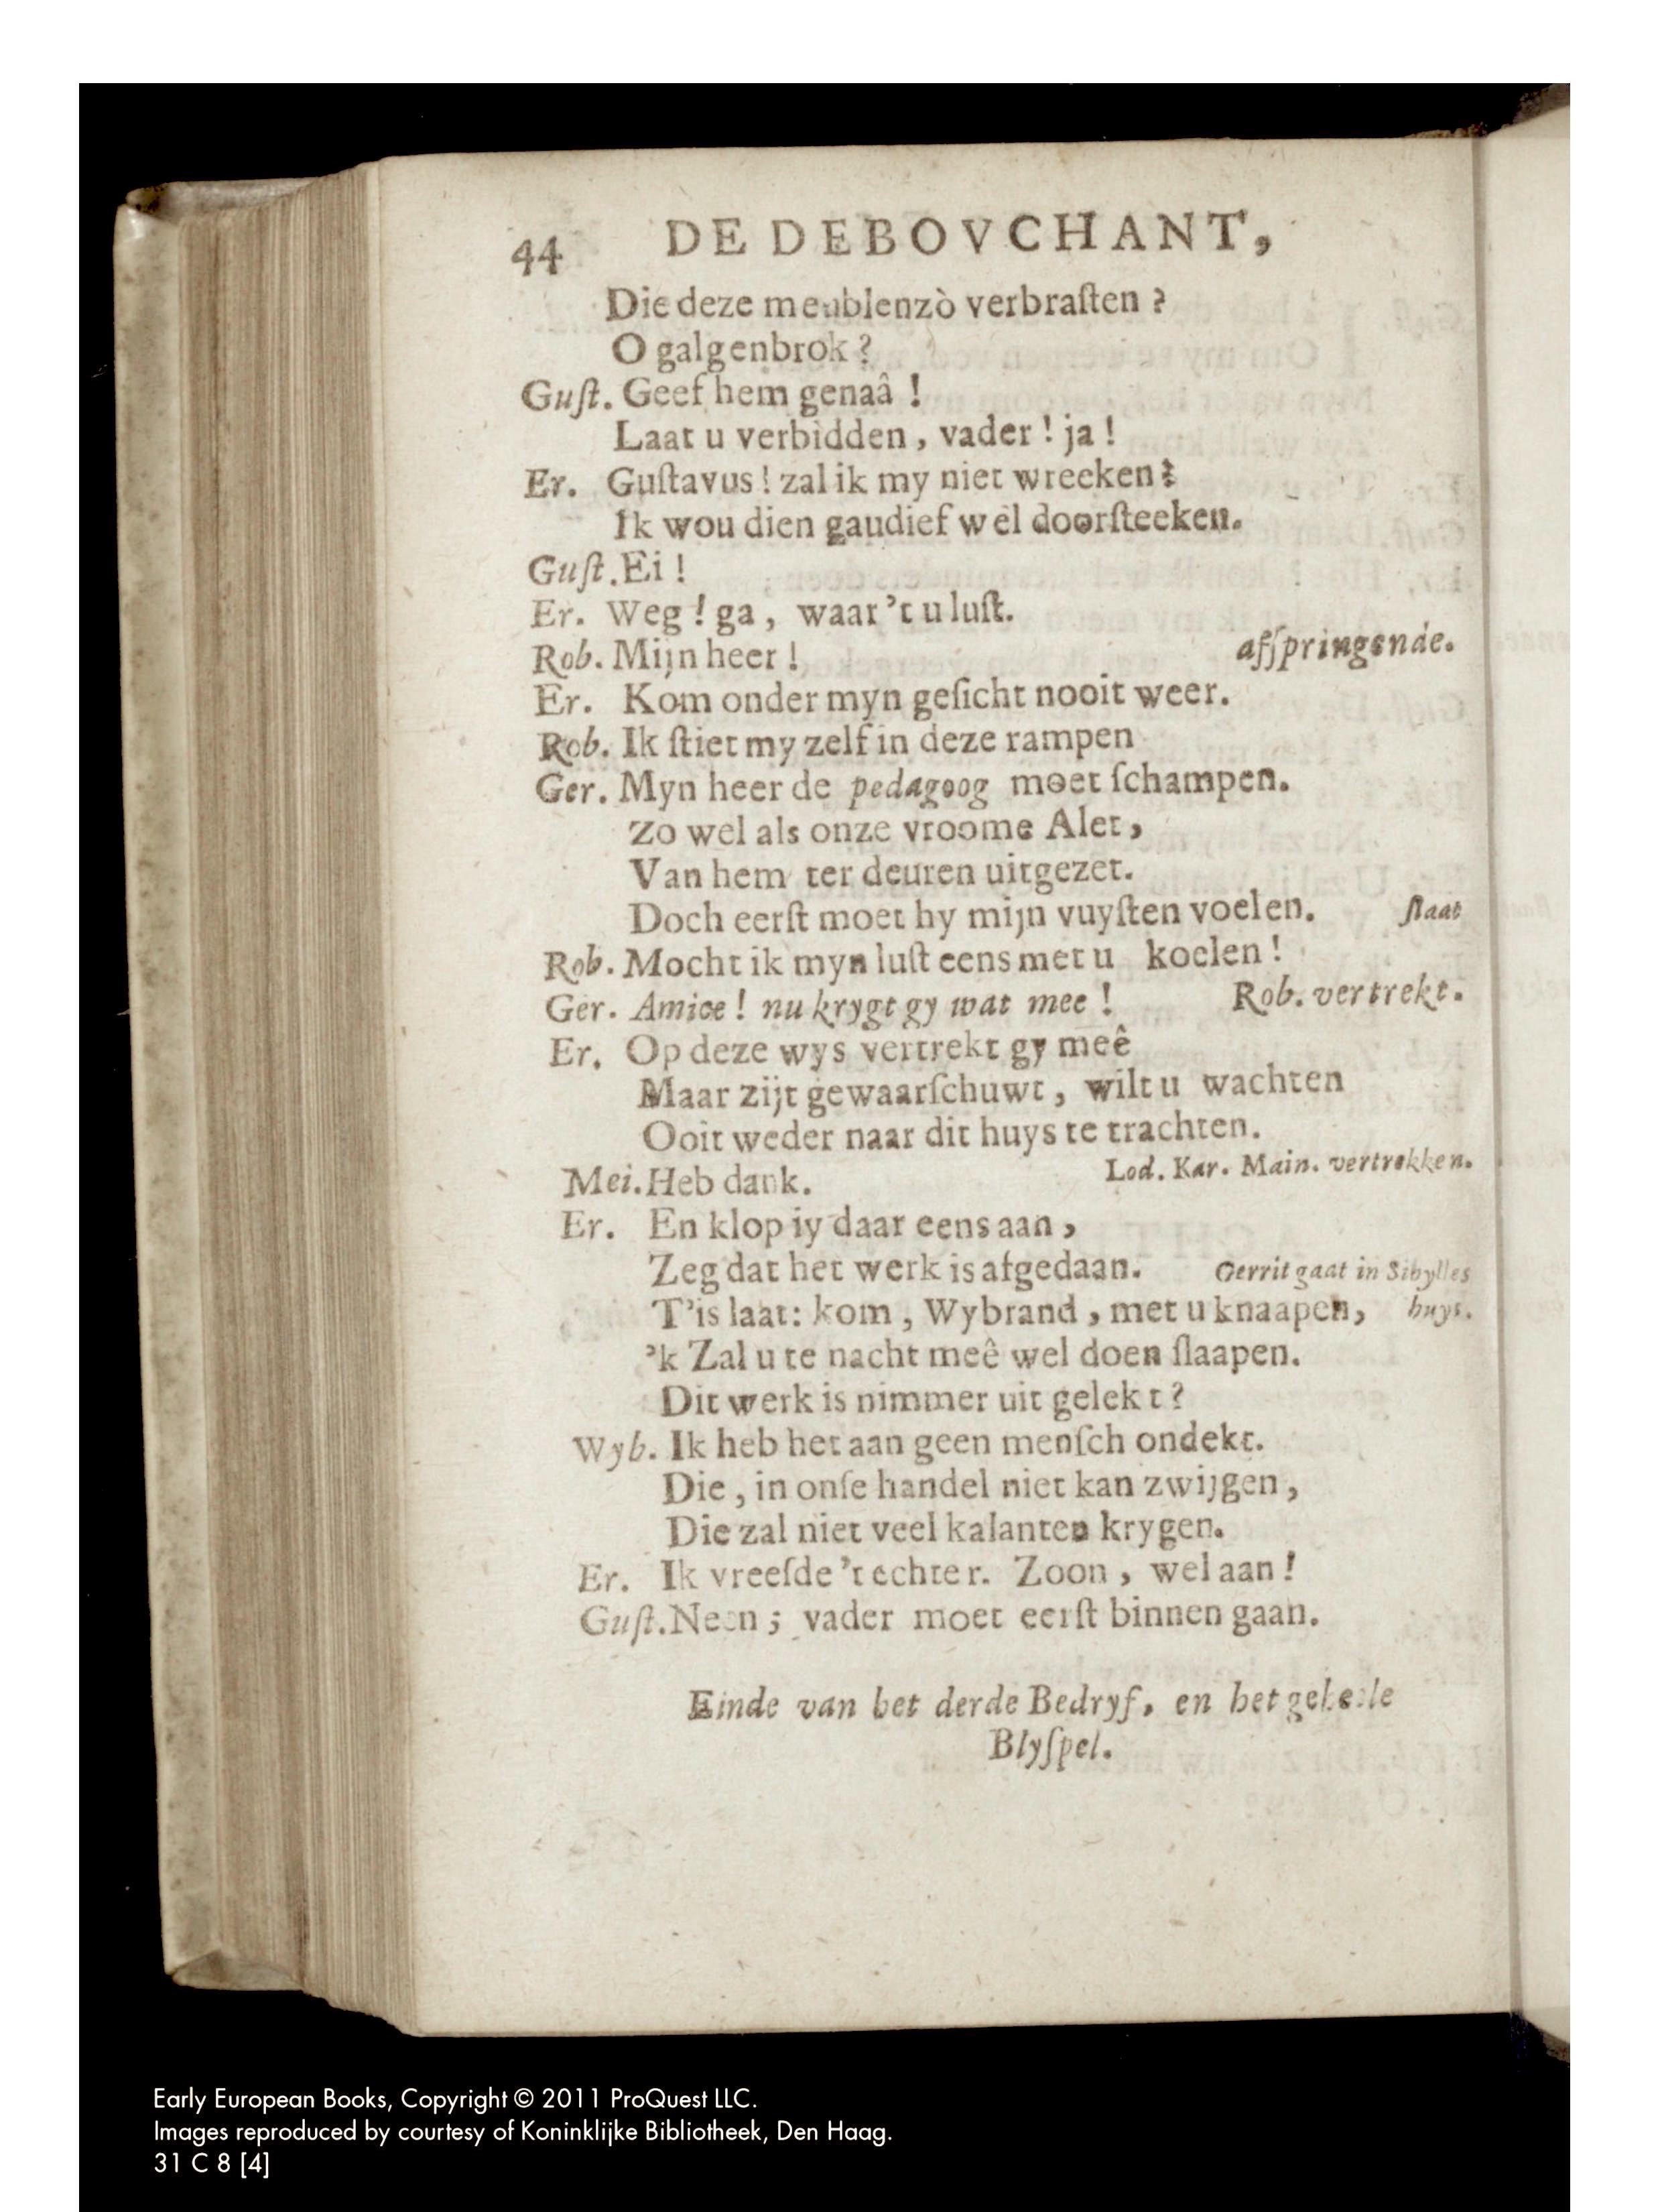 44 DE DEBOVCHANT,
Die deze meublenzò verbraſten ?
O galgenbrok ?
Guſt. Geef hem genaâ !
Laat u verbidden, vader ! ja !
Er. Guſtavus ! zal ik my niet wreeken ?
Ik wou dien gaudief wel doorſteeken.
Guſt. Ei !
Er. Weg ! ga, waar 't u luſt.
Rob. Mijn heer ! afſpringende.
Er. Kom onder myn geſicht nooit weer.
Rob. Ik ſtiet my zelf in deze rampen
Ger. Myn heer de pedagoog moet ſchampen.
Zo wel als onze vroome Alet,
Van hem ter deuren uitgezet.
Doch eerſt moet hy mijn vuyſten voelen. ſlaat
Rob. Mocht ik myn luſt eens met u koelen !
Ger. Amice ! nu krygt gy wat mee ! Rob. vertrekt.
Er. Op deze wys vertrekt gy meê
Maar zijt gewaarſchuwt, wilt u wachten
Ooit weder naar dit huys te trachten.
Mei. Heb dank. Lod. Kar. Main. vertrekken.
Er. En klop iy daar eens aan,
Zeg dat het werk is afgedaan. Gerrit gaat in Sibylles
T'is laat: kom, Wybrand, met u knaapen, huys.
'k Zal u te nacht meê wel doen ſlaapen.
Dit werk is nimmer uit gelekt ?
Wyb. Ik heb het aan geen menſch ondekt.
Die, in onſe handel niet kan zwijgen,
Die zal niet veel kalanten krygen.
Er. Ik vreeſde 't echter. Zoon, wel aan !
Guſt. Neen ; vader moet eerſt binnen gaan.
Einde van het derde Bedryf, en het geheele
Blyſpel.
Early European Books, Copyright © 2011 ProQuest LLC.
Images reproduced by courtesy of Koninklijke Bibliotheek, Den Haag.
31 C 8 [4]